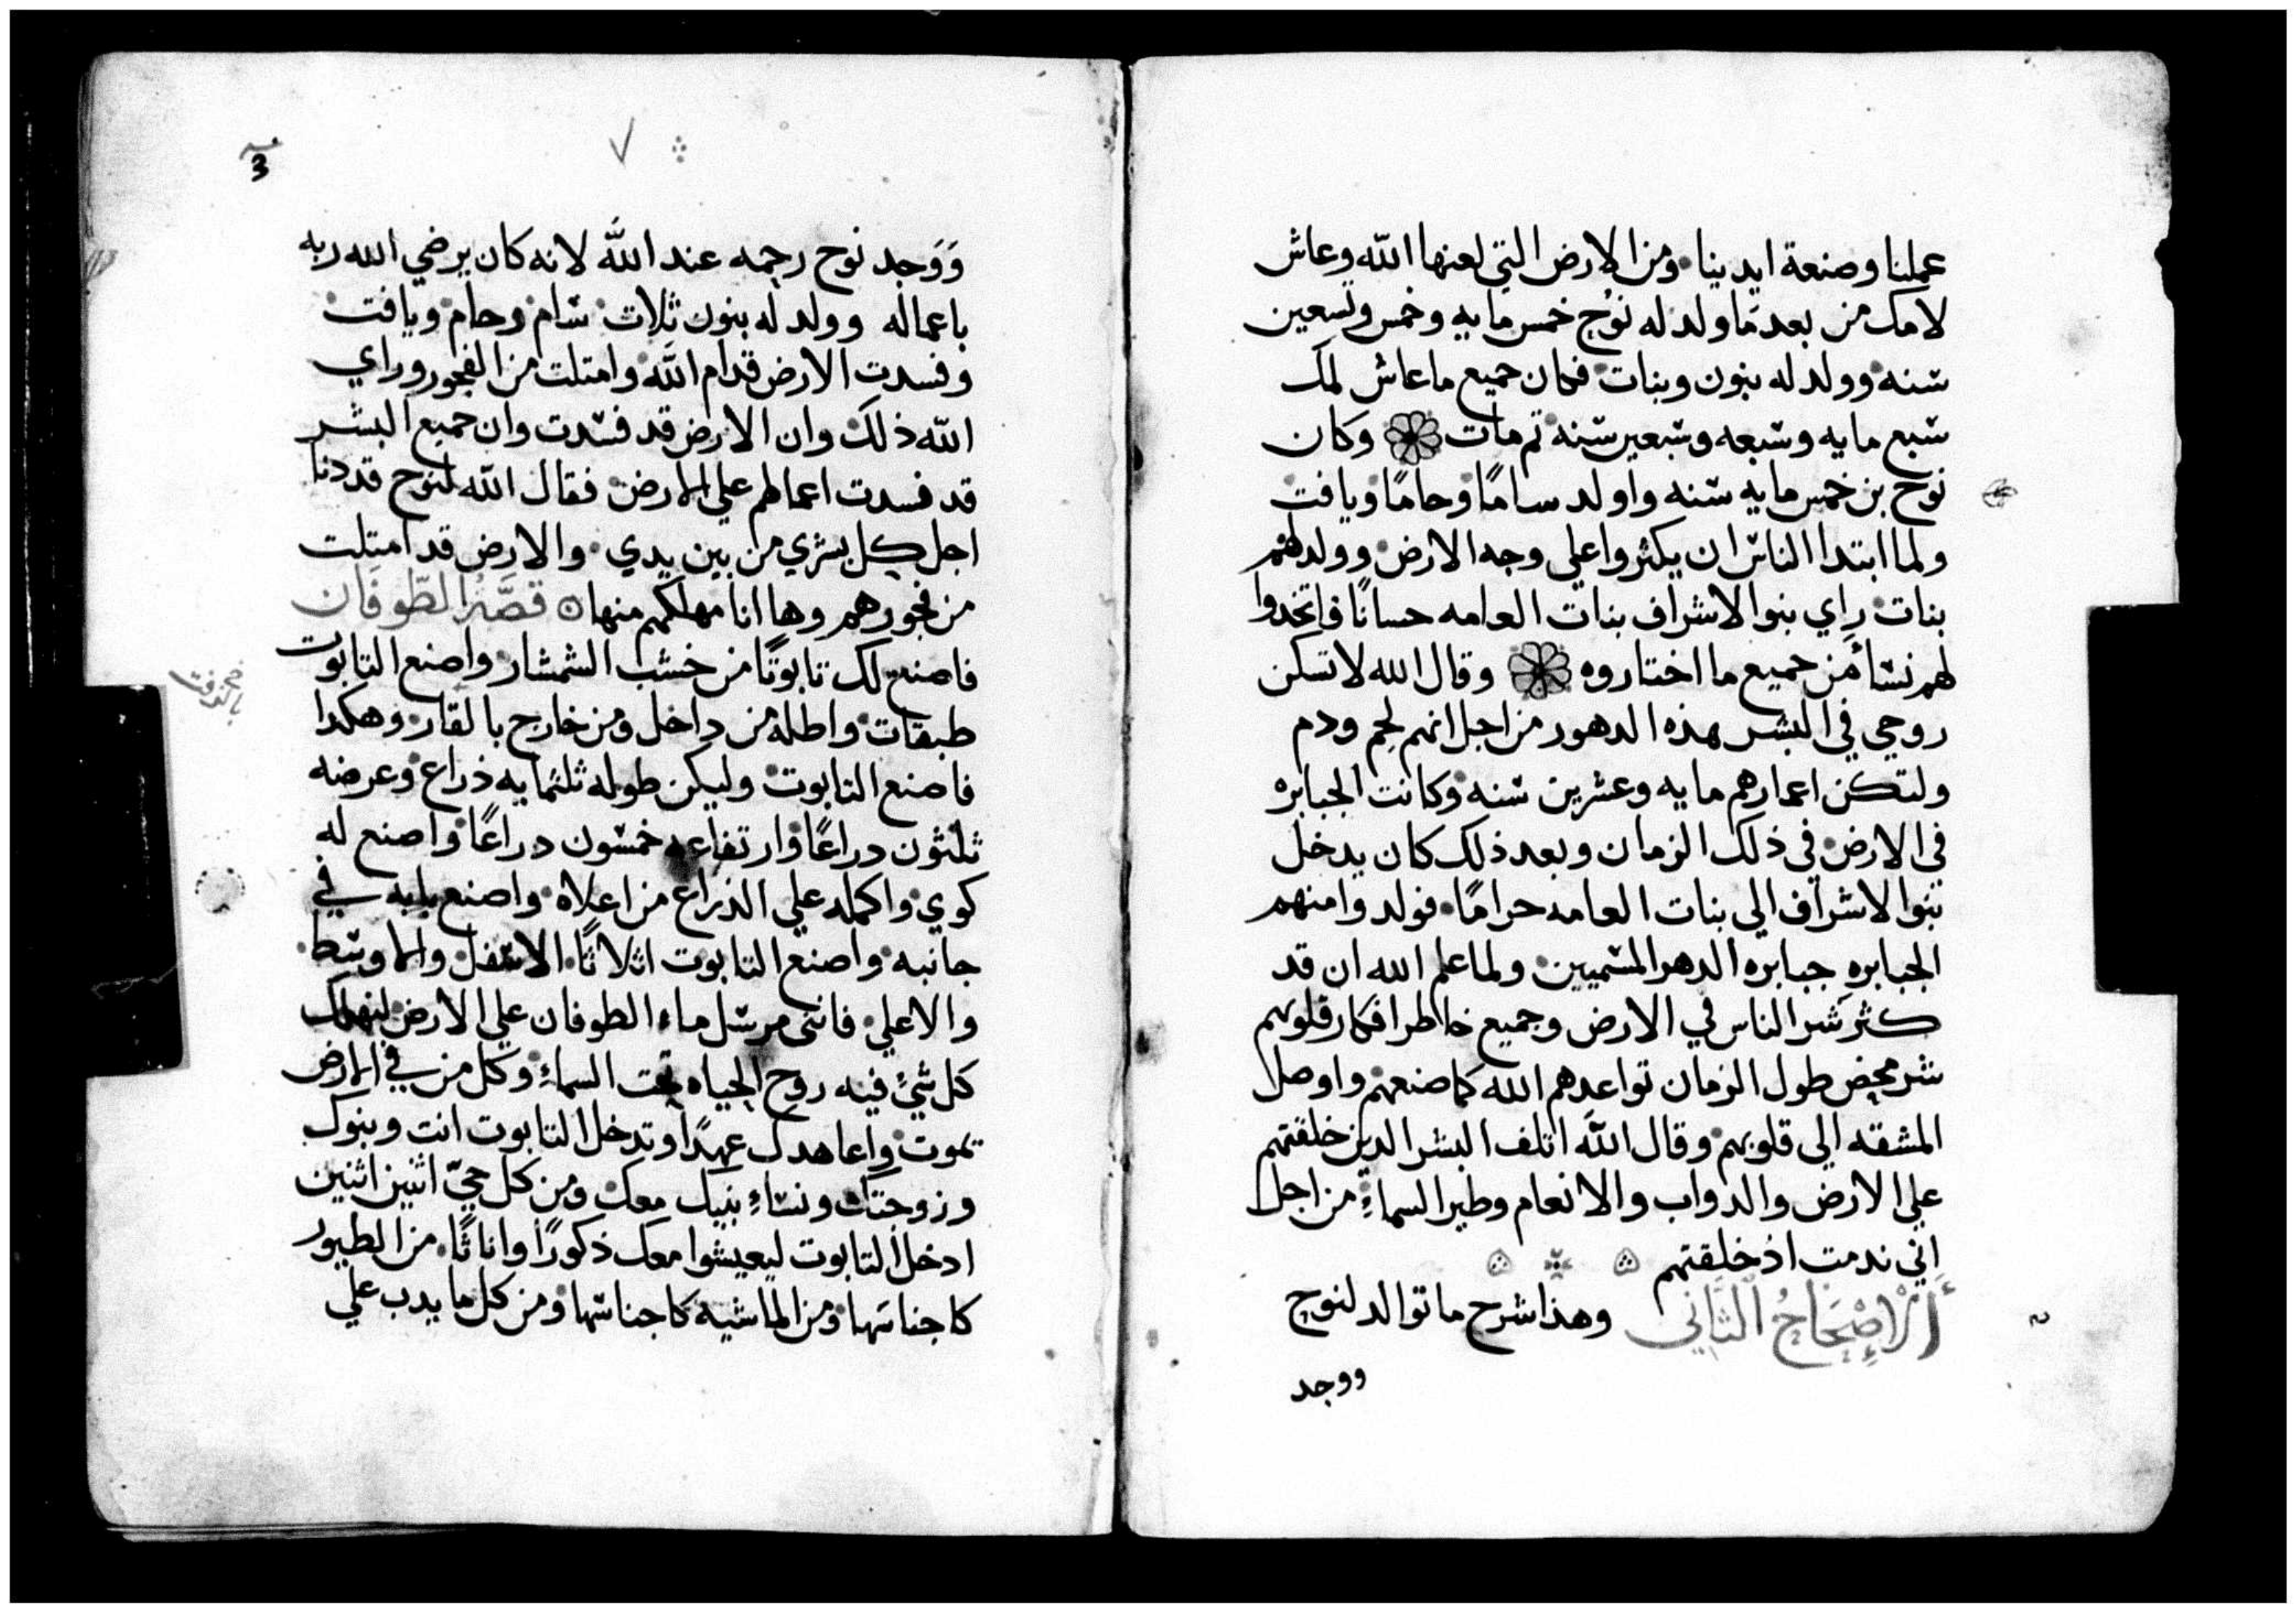 عملنا وصنعة ايدينا ومن الارض التي لعنها اللّه وعاش
لامك من بعد ما ولد له نوُح خمس مايه وخمس وتسعين
سنه وولد له بنون وبنات فكان جميع ما عاش لمك
سبع مايه وسبعه وسبعين سنه تم مات وكان
نوح بن خمس مايه سنه واولد سامًا وحامًا ويافت
ولما ابتدا الناس ان يكثروا علي وجه الارض وولد لهم
بنات راي بنوا الاشراف بنات العامه حسانًا فاتخدوا
لهم نسأ من جميع ما اختاروه وقال الله لا تسكن
روحي في البشر بهذه الدهور من اجل انهم لحم ودم
ولتكن اعمارهم مايه وعشرين سنه وكانت الجبابره
في الارض في ذلك الزمان وبعد ذلك كان يدخل
بنوا الاشراف الي بنات العامه حرامًا فولدوا منهم
الجبابره جبابره الدهر المسميين ولما علم الله ان قد
كثر شر الناس في الارض وجميع خاطر افكار قلوبهم
شر محض طول الزمان تواعدهم الله كما صنعهم واوصل
المشقه الي قلوبهم وقال اللّه اتلف البشر الدين خلقتهم
علي الارض والدواب والانعام وطير السماءِ من اجل
اني ندمت اذ خلقتهم
أَلْإِصْحَاحُ الثَّاني وهذا شرح ما توالد لنوح
ووجد
3
٧
وَوَجد نوح رحمه عند اللّه لانه كان يرضي الله ربه
باعماله وولد له بنون ثلاث سام وحام ويافت
وفسدت الارض قدام اللّه وامتلت من الفجور وراي
اللّه ذلك وان الارض قد فسدت وان جميع البشر
قد فسدت اعمالهم علي الارض فقال اللّه لنوح قد دنا
اجل كل بشري من بين يدي والارض قد امتلت
من فجورهم وها انا مهلكهم منها قصَّة الطّوفَان
فاصنع لك تابوتًا من خشب الشمشار واصنع التابوت
طبقات واطله من داخل ومن خارج بالقار وهكدا
فاصنع التابوت وليكن طوله ثلثمايه ذراع وعرضه
ثلثون دراعًا وارتفاعه خمسون دراعًا واصنع له
كوي واكمله علي الذراع من اعلاه واصنع بابه في
جانبه واصنع التابوت اثلاثًا الاسفل والاوسط
والاعلي فانني مرسل ماء الطوفان علي الارض ليهلك
كل شئ فيه روح الحياه تحت السماءِ وكل من في الارض
يموت واعاهدك عهدًا وتدخل التابوت انت وبنوك
وزوجتك ونساءِ بنيك معك ومن كل حيّ اثنين اثنين
ادخل التابوت ليعيشوا معك ذكورًا واناثًا من الطيور
كاجناسها ومن الماشيه كاجناسها ومن كل ما يدب علي
بالزفت